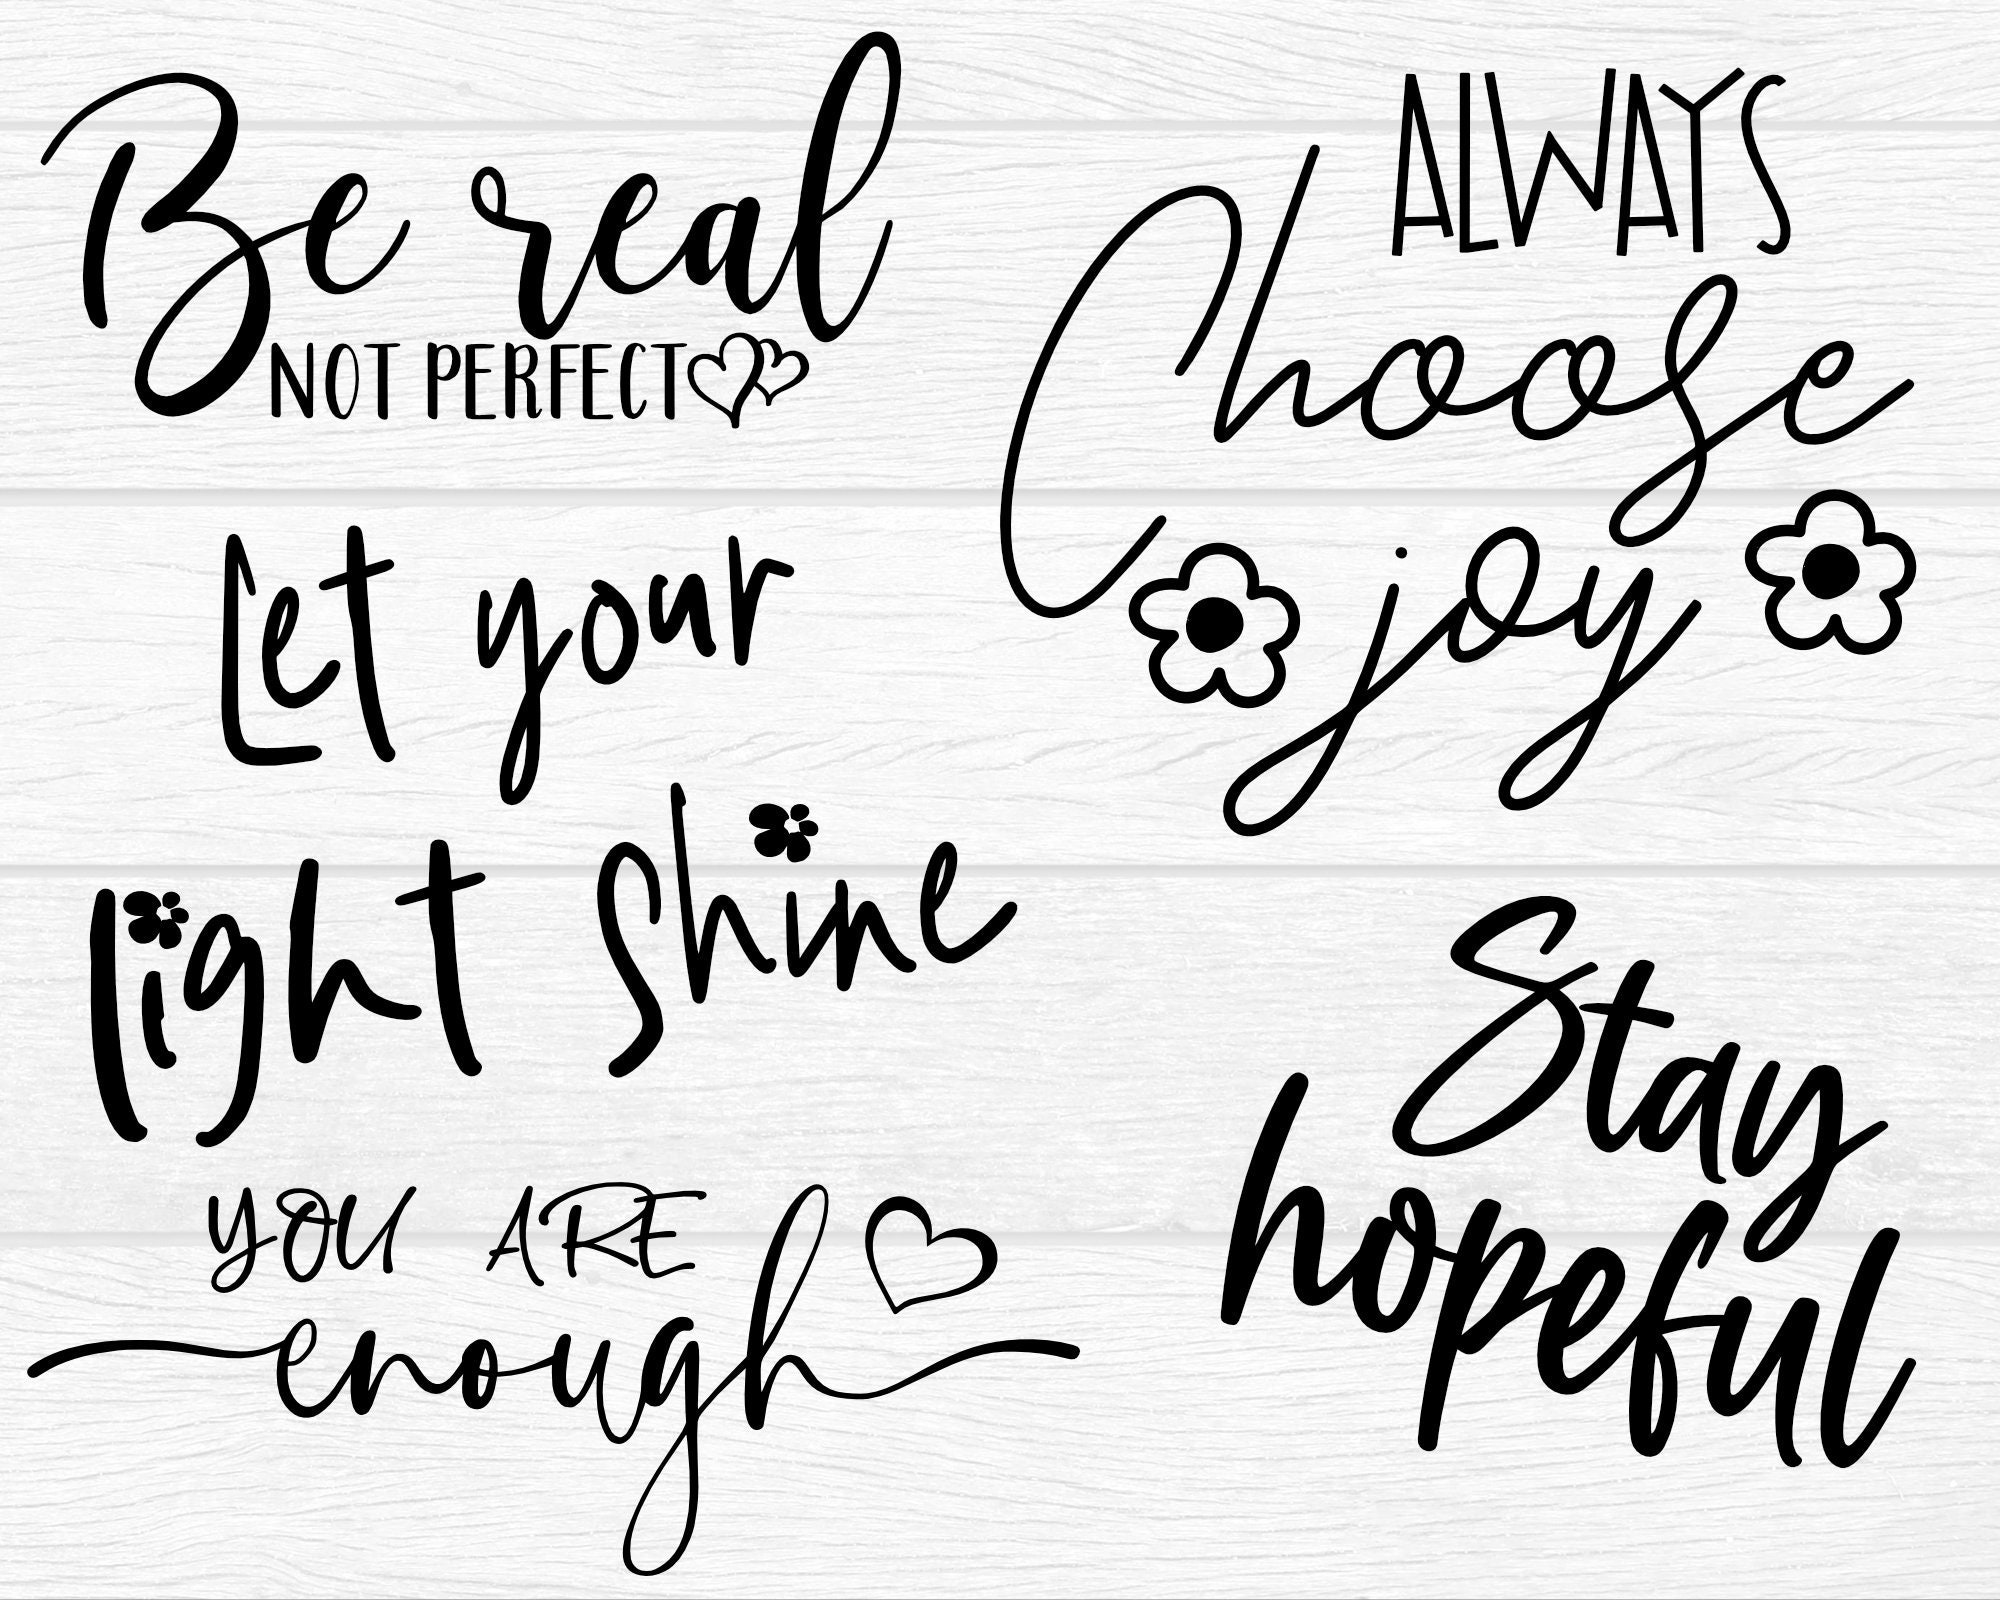 Be real
NOT PERFECT
ALWAYS
Choose
joy
Let your
light shine
Stay
hopeful
YOU ARE
enough